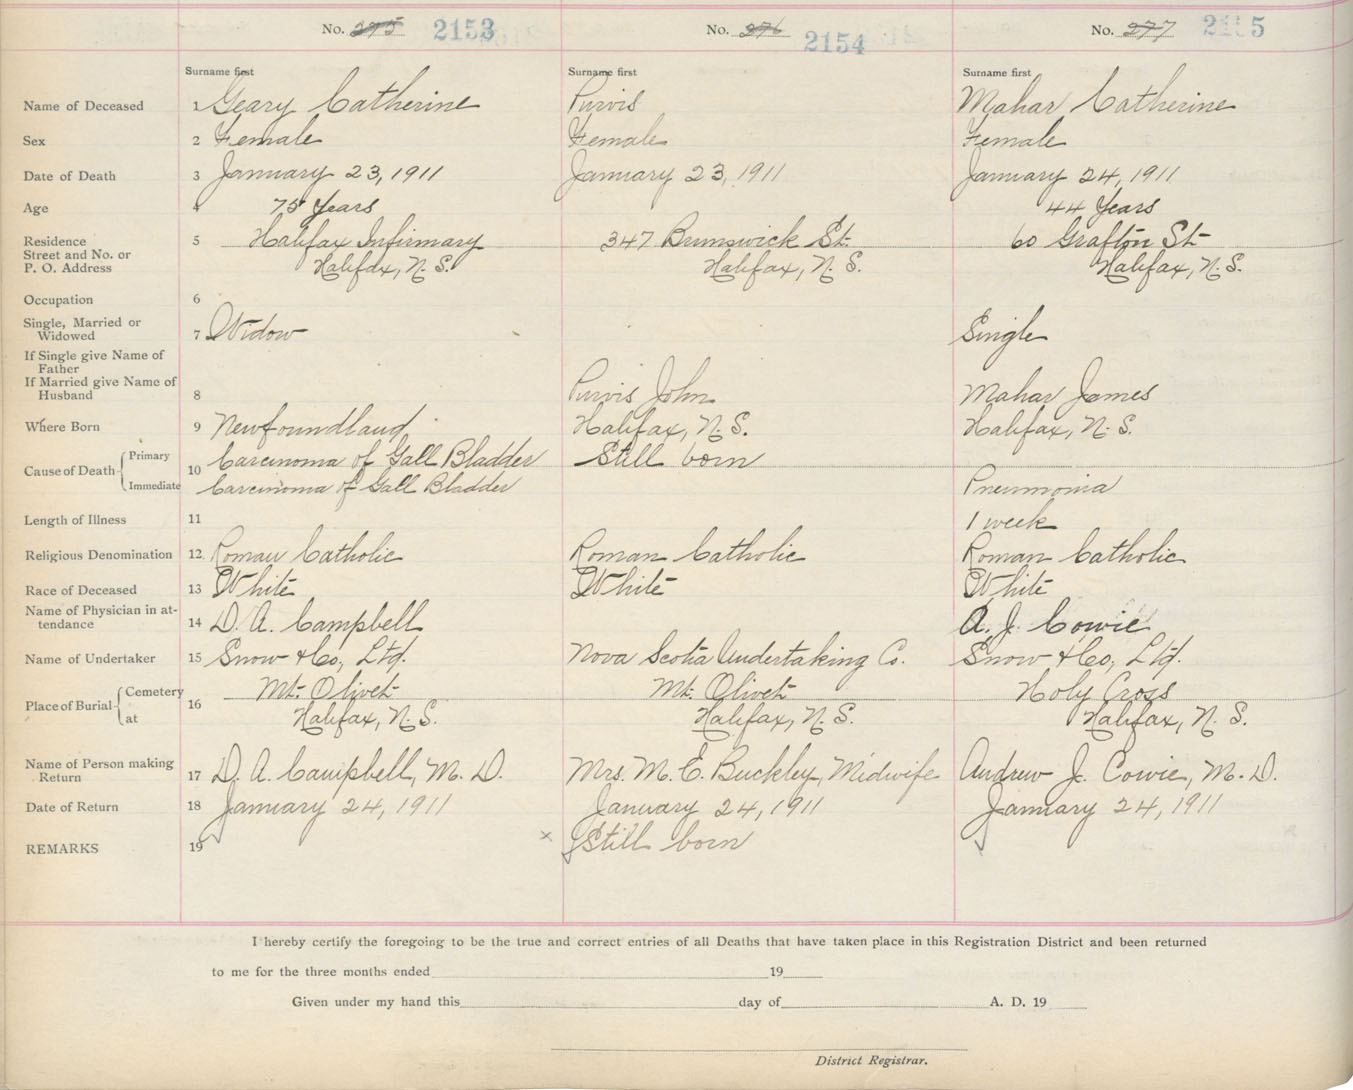 No. 275 2153 No. 276 2154 No. 277 2155
Surname first Surname first Surname first
Name of Deceased 1 Geary Catherine Purvis Mahar Catherine
Sex 2 Female Female Female
Date of Death 3 January 23, 1911 January 23, 1911 January 24, 1911
Age 4 75 Years 44 Years
Residence 5 Halifax Infirmary 347 Brunswick St. 60 Grafton St
Street and No. or
P. O. Address Halifax, N. S. Halifax, N. S. Halifax, N. S.
Occupation 6
Single, Married or
Widowed 7 Widow Single
If Single give Name of
Father
If Married give Name of
Husband 8 Purvis John Mahar James
Where Born 9 Newfoundland Halifax, N. S. Halifax, N. S.
Cause of Death 10 Primary Carcinoma of Gall Bladder Still born
Immediate Carcinoma of Gall Bladder Pneumonia
Length of Illness 11 1 week
Religious Denomination 12 Roman Catholic Roman Catholic Roman Catholic
Race of Deceased 13 White White White
Name of Physician in at-
tendance 14 D. A. Campbell A. J. Cowie
Name of Undertaker 15 Snow & Co., Ltd. Nova Scotia Undertaking Co. Snow & Co., Ltd.
Place of Burial 16 Cemetery Mt. Olivet Mt. Olivet Holy Cross
at Halifax, N. S. Halifax, N. S. Halifax, N. S.
Name of Person making
Return 17 D. A. Campbell, M. D. Mrs. M. E. Buckley, Midwife Andrew J. Cowie, M. D.
Date of Return 18 January 24, 1911 January 24, 1911 January 24, 1911
REMARKS 19 x Still born
I hereby certify the foregoing to be the true and correct entries of all Deaths that have taken place in this Registration District and been returned
to me for the three months ended 19
Given under my hand this day of A. D. 19
District Registrar.